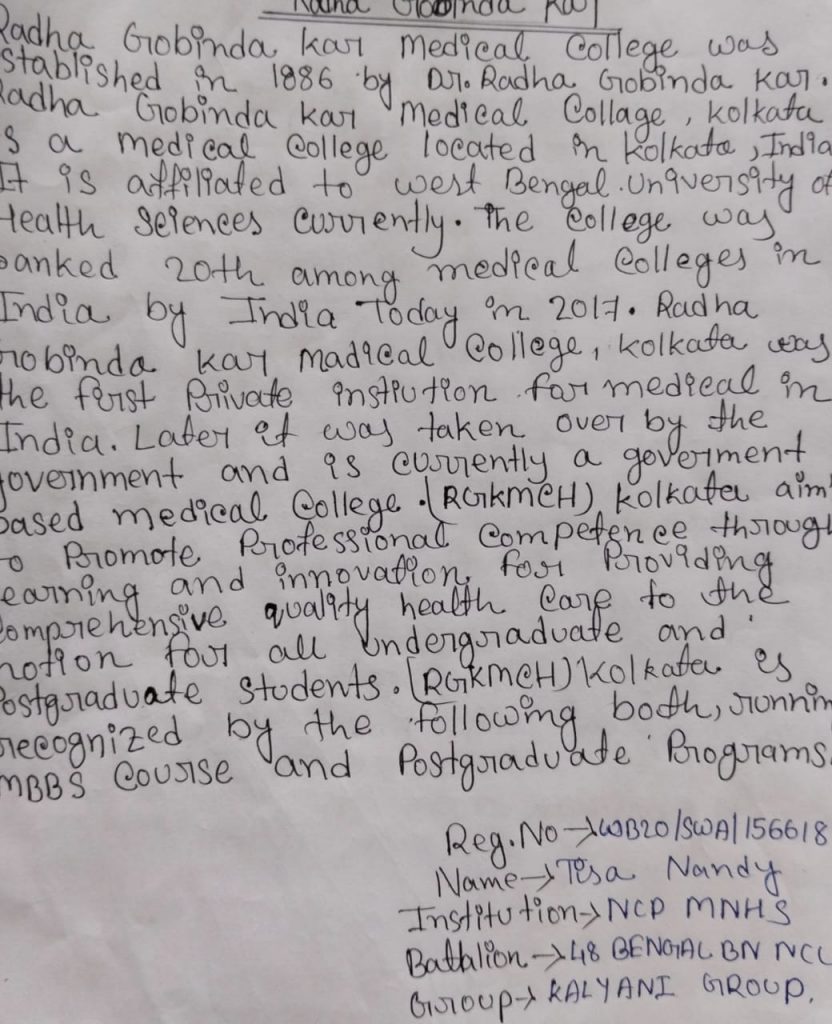 Radha Gobinda Kar
Radha Gobinda kar medical College was
stablished in 1886 by Dr. Radha Gobinda Kar.
Radha Gobinda kar Medical Collage, kolkata
s a medical College located in kolkata, India
It is affiliated to west Bengal University of
Health Seiences currently. The College was
ranked 20th among medical Colleges in
India by India Today in 2017. Radha
Gobinda kar madical College, kolkata was
the first Private instiution for medical in
India. Later it was taken over by the
government and is currently a goverment
based medical College. (RGKMCH) kolkata aim
to Promote Professional Competence through
learning and innovation, for Providing
Comprehensive quality health Care to the
notion four all undergraduate and
Postgraduate Students. (RGKMCH) Kolkata is
recognized by the following both, runnin
MBBS Course and Postgraduate Programs.
Reg.No → WB20/SWA/156618
Name → Tisa Nandy
Institution → NCP MNHS
Battalion → 48 BENGAL BN NCC
Group → KALYANI GROUP.